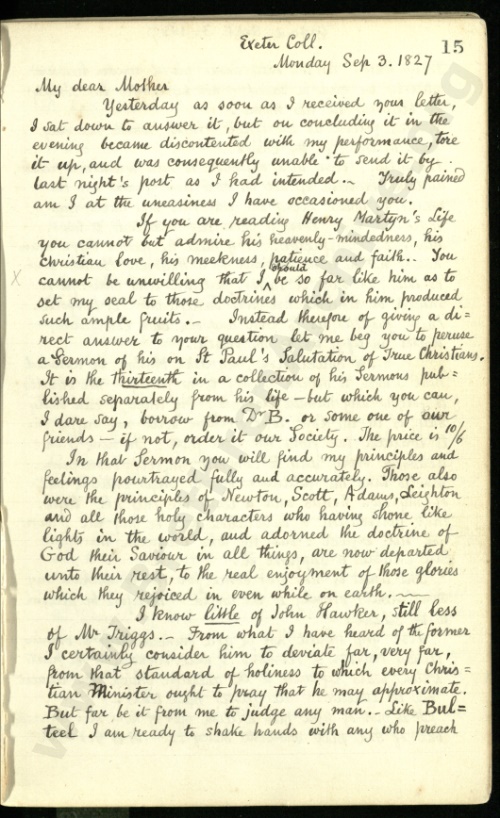 Exeter Coll. 15
Monday Sep 3. 1827
My dear Mother
Yesterday as soon as I received your letter,
I sat down to answer it, but on concluding it in the
evening became discontented with my performance, tore
it up, and was consequently unable to send it by
last night's post as I had intended.~ Truly pained
am I at the uneasiness I have occasioned you.
If you are reading Henry Martyn's Life
you cannot but admire his heavenly-mindedness, his
Christian love, his meekness, patience and faith.. You
cannot be unwilling that I should be so far like him as to
set my seal to those doctrines which in him produced
such ample fruits.– Instead therefore of giving a di=
rect answer to your question let me beg you to peruse
a Sermon of his on St Paul's Salutation of True Christians.
It is the Thirteenth in a collection of his Sermons pub=
lished separately from his life – but which you can,
I dare say, borrow from Dr B. or some one of our
friends – if not, order it our Society. The price is 10/6
In that Sermon you will find my principles and
feelings pourtrayed fully and accurately. Those also
were the principles of Newton, Scott, Adams, Leighton
and all those holy characters who having shone like
lights in the world, and adorned the doctrine of
God their Saviour in all things, are now departed
unto their rest, to the real enjoyment of those glories
which they rejoiced in even while on earth.~
I know little of John Hawker, still less
of Mr Triggs.– From what I have heard of the former
I certainly consider him to deviate far, very far,
from that standard of holiness to which every Chris=
tian Minister ought to pray that he may approximate.
But far be it from me to judge any man.– Like Bul=
teel I am ready to shake hands with any who preach